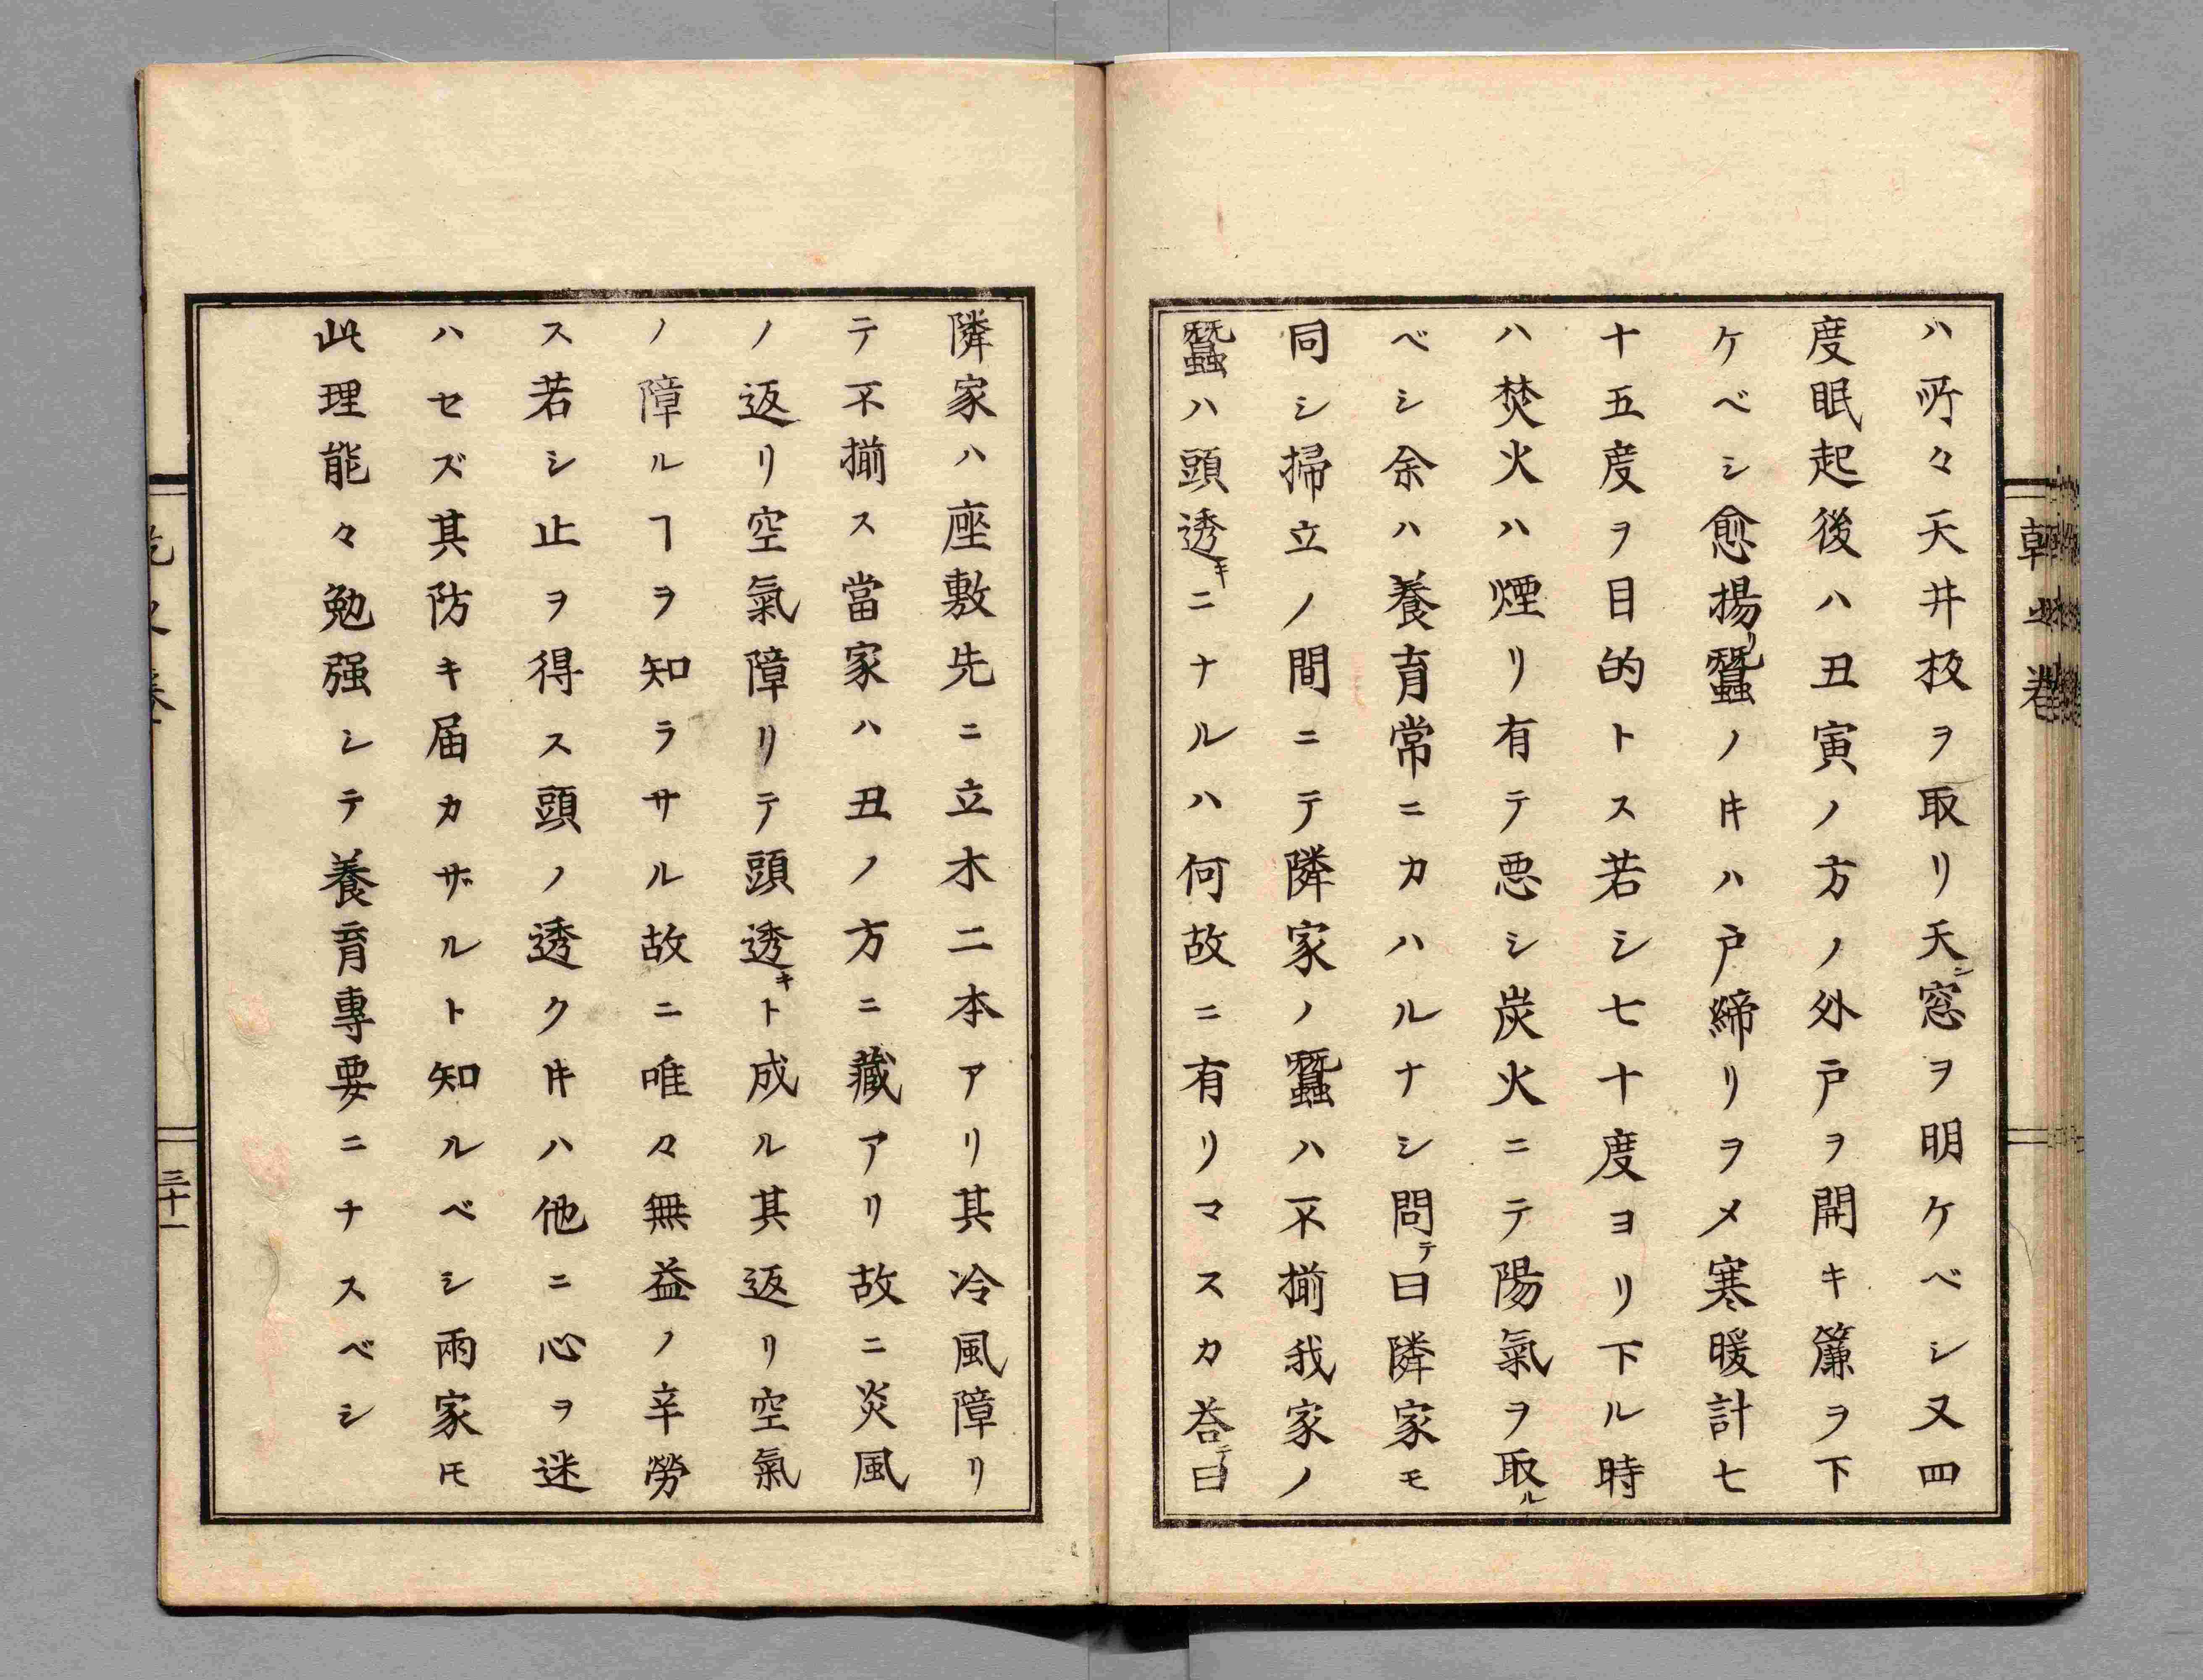 ハ所々天井板ヲ取リ天シ窓ヲ明ケベシ又四
度眠起後ハ丑寅ノ方ノ外戸ヲ開キ簾ヲ下
ケベシ愈揚リ蠶ノ𪜈ハ戸締リヲメ寒暖計七
十五度ヲ目的トス若シ七十度ヨリ下ル時
ハ焚火ハ煙リ有テ悪シ炭火ニテ陽氣ヲ取ル
ベシ余ハ養育常ニカハルナシ問テ曰隣家モ
同シ掃立ノ間ニテ隣家ノ蠶ハ不揃我家ノ
蠶ハ頭透キニナルハ何故ニ有リマスカ荅テ曰
隣家ハ座敷先ニ立木二本アリ其冷風障リ
テ不揃ス當家ハ丑ノ方ニ藏アリ故ニ炎風
ノ返リ空氣障リテ頭透キト成ル其返リ空氣
ノ障ルヿヲ知ラサル故ニ唯々無益ノ辛勞
ス若シ止ヲ得ス頭ノ透クキハ他ニ心ヲ迷
ハセズ其防キ届カザルト知ルベシ兩家𪜈
此理能々勉强シテ養育專要ニナスベシ
三十一